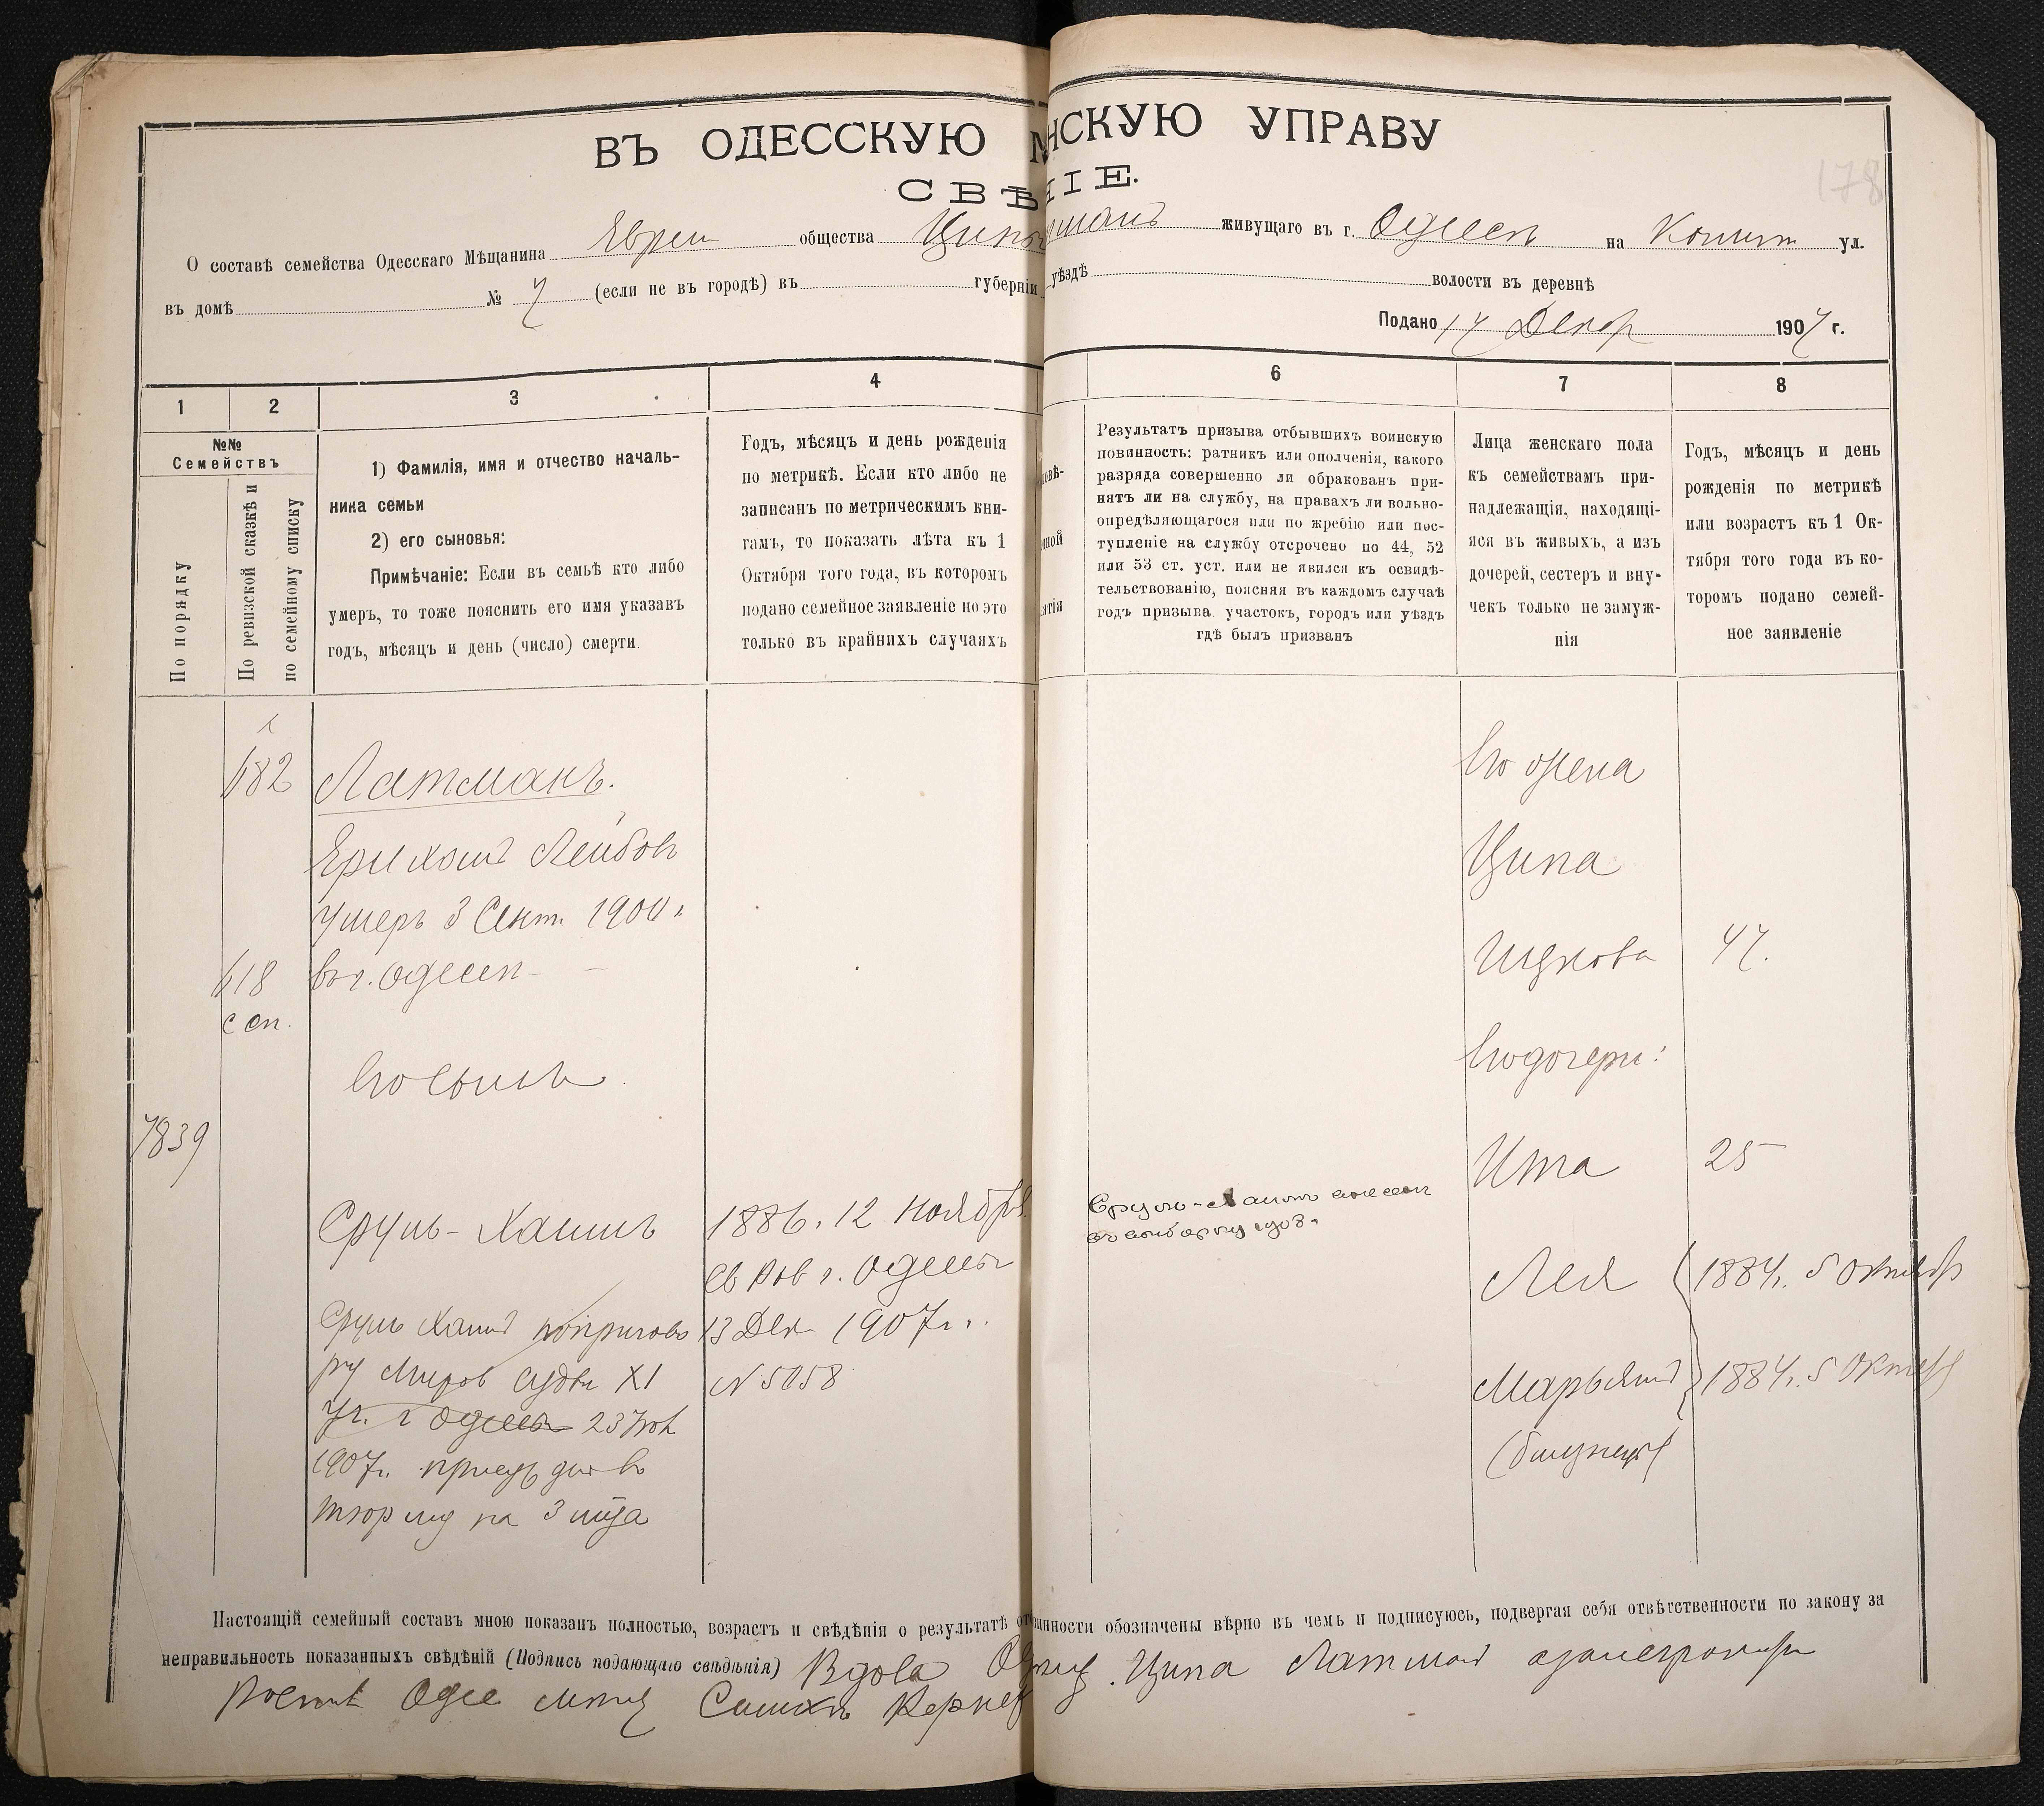 ВЪ ОДЕССКУЮ НСКУЮ УПРАВУ
СВѢ НІЕ.
178
О составѣ семейства Одесскаго Мѣщанина Евреи общества живущаго въ г. Одессѣ на ул.
въ домѣ № 7 (если не въ городѣ) въ губерніи уѣздѣ волости въ деревнѣ
Подано 17 Декабр 1907 г.
1 2 3 4 6 7 8
№№ Семействъ
По порядку
По ревизской сказкѣ и по семейному списку
1) Фамилія, имя и отчество началь-
ника семьи
2) его сыновья:
Примѣчаніе: Если въ семьѣ кто либо
умеръ, то тоже пояснить его имя указавъ
годъ, мѣсяцъ и день (число) смерти.
Годъ, мѣсяцъ и день рожденія
по метрикѣ. Если кто либо не
записанъ по метрическимъ кни-
гамъ, то показать лѣта къ 1
Октября того года, въ которомъ
подано семейное заявленіе но это
только въ крайнихъ случаяхъ
Результатъ призыва отбывшихъ воинскую
повинность: ратникъ или ополченія, какого
разряда совершенно ли обракованъ при-
нятъ ли на службу, на правахъ ли вольно-
опредѣляющагося или по жребію или пос-
тупленіе на службу отсрочено по 44, 52
или 53 ст. уст. или не явился къ освидѣ-
тельствованію, поясняя въ каждомъ случаѣ
годъ призыва. участокъ, городъ или уѣздъ
гдѣ былъ призванъ
Лица женскаго пола
къ семействамъ при-
надлежащія, находящі-
яся въ живыхъ, а изъ
дочерей, сестеръ и вну-
чекъ только не замуж-
нія
Годъ, мѣсяцъ и день
рожденія по метрикѣ
или возрастъ къ 1 Ок-
тября того года въ ко-
торомъ подано семей-
ное заявленіе
682 Латманъ. Его жена
Лейбовъ Ципа
умеръ 3 Сент. 1900 г.
618 въ г. Одессѣ Ицкова 47.
с сп.
Его сынъ Его дочери:
7839
Ита 25
Сруль-Хаимъ 1886. 12 Ноября Сруль-Хаимъ внесенъ
въ выборку 1908.
г. Одессы Лея 1884 г. 5 Октябр
Сруль Хаимъ по пригово 13 Дек 1907 г.
ру Миров Судьи XI № 5058 Марьямъ 1884 г. 5 Октяб
уч. г Одессы 23 Ноя
1907 г. присужденъ (близнецы)
тюрьму на 3 мѣца
Настоящій семейный составъ мною показанъ полностью, возрастъ и свѣдѣнія о результатѣ от инности обозначены вѣрно въ чемъ и подписуюсь, подвергая себя отвѣтственности по закону за
неправильность показанныхъ свѣдѣній (Подпись подающаго свѣдѣнія) Вдова Ципа Латман
Одес мѣщ